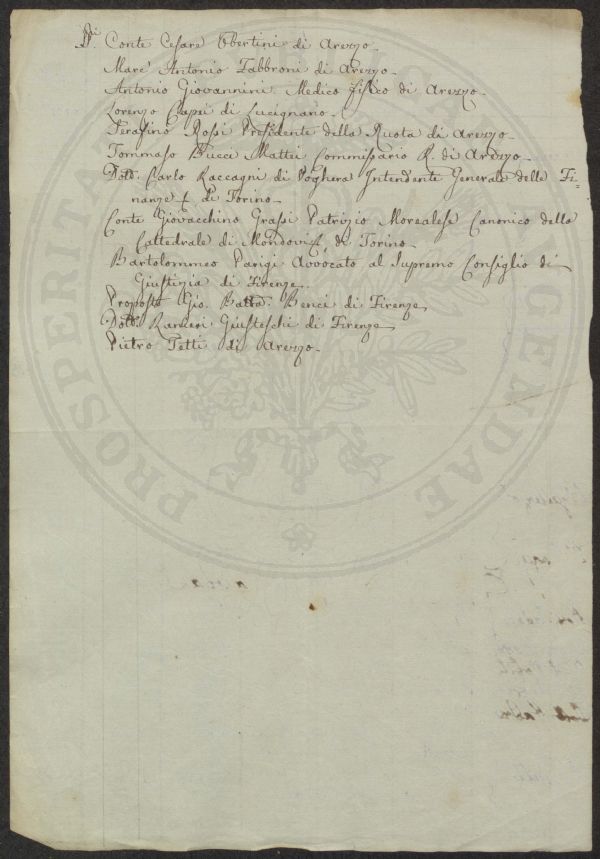 SS.ri Conte Cesare Ubertini di Arezzo.
Marc' Antonio Fabbroni di Arezzo.
Antonio Giovannini Medico fisico di Arezzo.
Lorenzo Capei di Lucignano.
Serafino Rossi Presidente della Ruota di Arezzo.
Tommaso Bucci Mattei Commissario R. di Arezzo.
Dott. Carlo Raccagni di Voghera Intendente Generale delle Fi=
nanze di Torino.
Conte Giovacchino Grassi Patrizio Morealese Canonico della
Cattedrale di Mondovi di Torino.
Bartolommeo Parigi Avvocato al Supremo Consiglio di
Giustizia di Firenze.
Proposto Gio. Batta. Benci di Firenze
Dott. Ranieri Giusteschi di Firenze
Pietro Tetti di Arezzo.
PROSPERITATI AUGENDAE